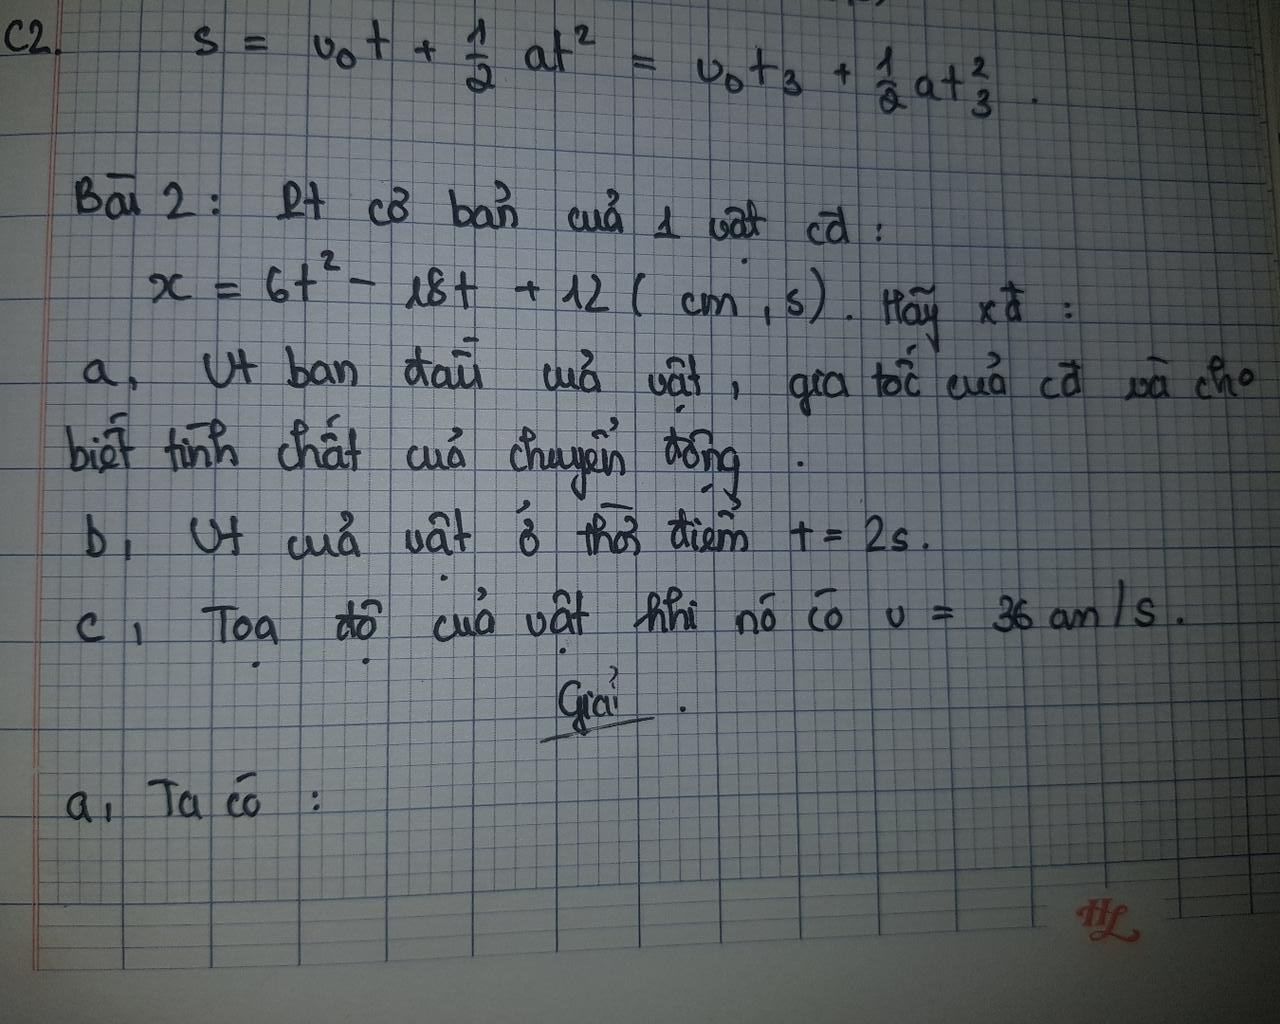 C2. s = v₀t + 1/2 at² = v₀t₃ + 1/2 at₃².
Bài 2: Pt cơ bản của 1 vật cđ:
x = 6t² - 18t + 12 (cm, s). Hãy xđ:
a, Vt ban đầu của vật, gia tốc của cđ và cho
biết tính chất của chuyển động.
b, Vt của vật ở thời điểm t = 2s.
c, Toạ độ của vật khi nó có v = 36 cm/s.
Giải.
a, Ta có:
HL